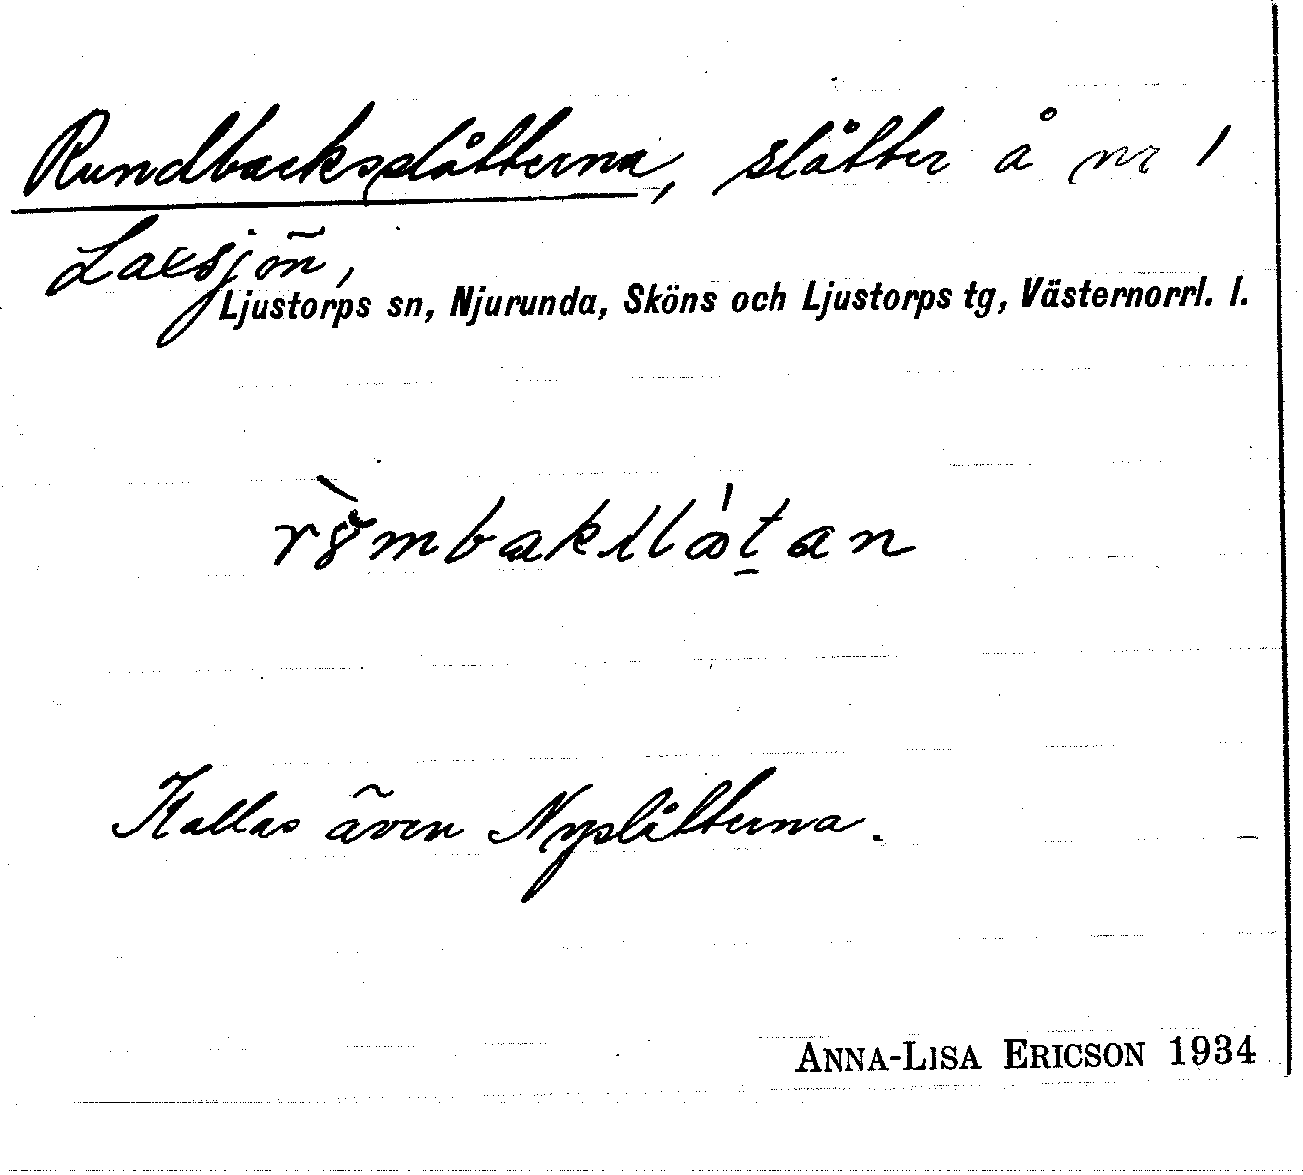 Rundbacksslåtterna, slåtter å nr 1
Laxsjön,
Ljustorps sn, Njurunda, Sköns och Ljustorps tg, Västernorrl. l.
Kallas även Nyslåtterna.
ANNA-LISA ERICSON 1934